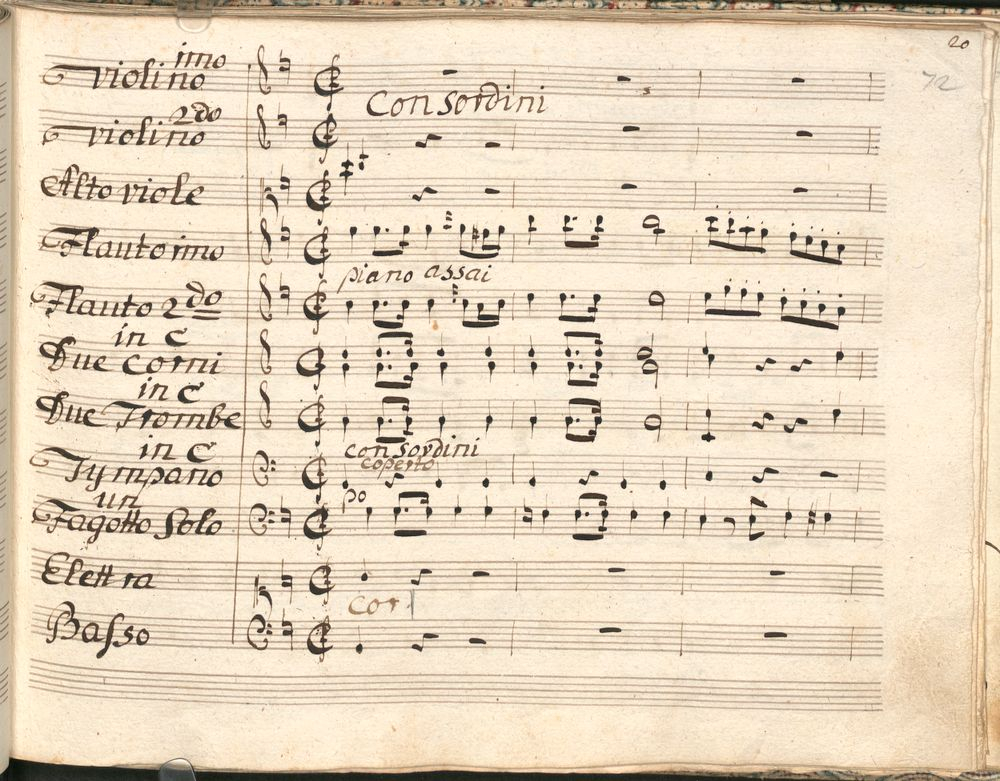 20
72
imo
violino
Con Sordini
2do
violino
Alto viole
Flauto imo
piano assai
Flauto 2do
in C
Due Corni
in C
Due Trombe
con Sordini
in C
coperto
Tympano
po
un
Fagotto Solo
Elettra
Cor
Basso